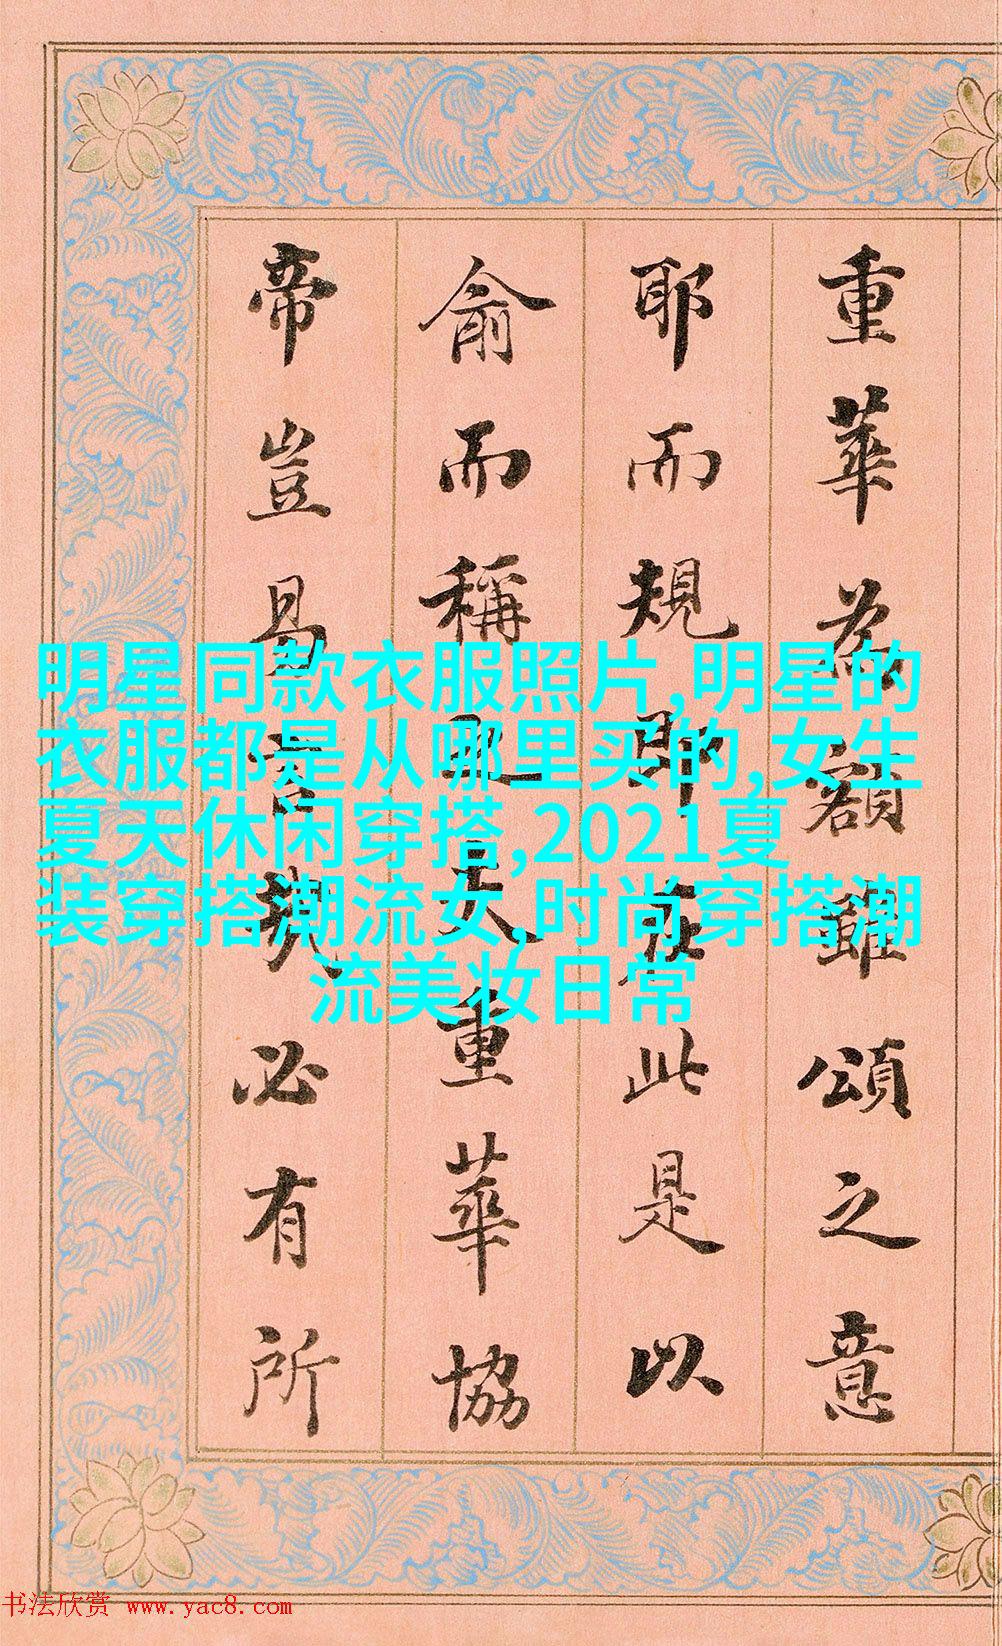 重華為額雖頌之意
耶而規即在此是以
俞而稱夫重華協
帝豈易言必有所
明星同款衣服照片,明星的
衣服都是从哪里买的,女生
夏天休闲穿搭,2021夏
装穿搭潮流女,时尚穿搭潮
流美妆日常
书法欣赏 www.yac8.com